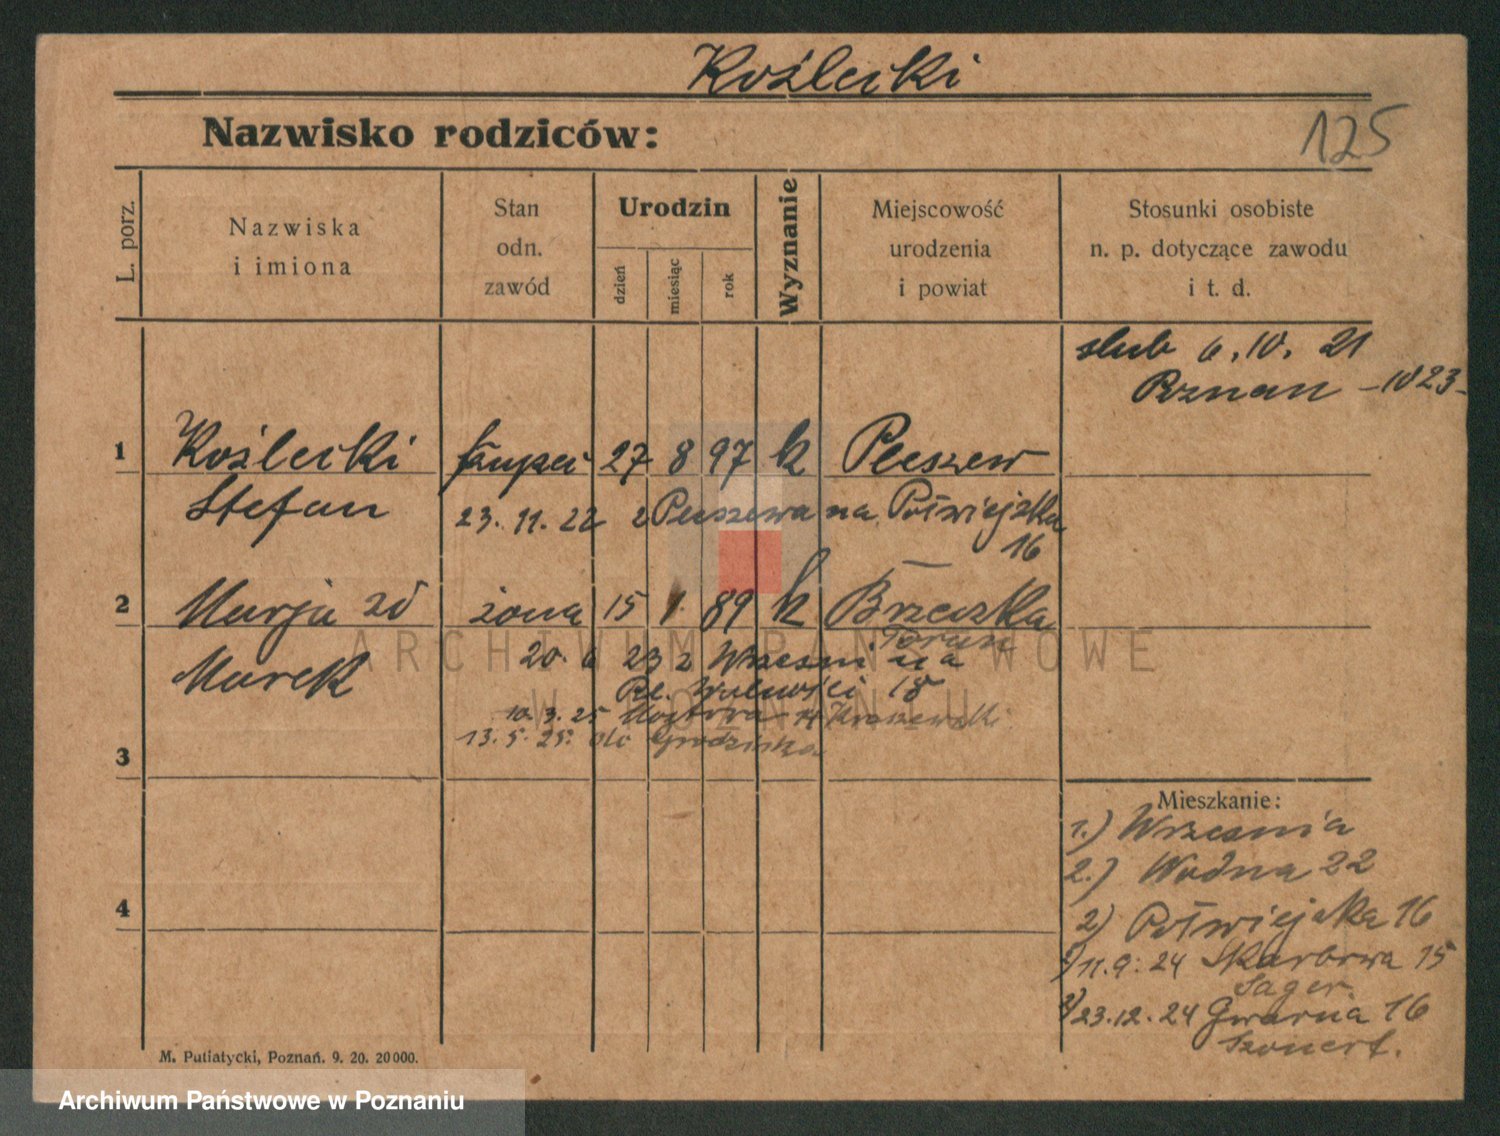 Koźlecki
125
Nazwisko rodziców:
L. porz.
Nazwiska
i imiona
Stan
odn.
zawód
Urodzin
dzień
miesiąc
rok
Wyznanie
Miejscowość
urodzenia
i powiat
Stosunki osobiste
n. p. dotyczące zawodu
i t. d.
slub 6. 10. 21
Poznan - 1023 -
1 Koźlecki 27 8 97 k Pleszew
Stefan 23. 11. 22 z Pleszewa na Półwiejska
16
2 Marja zd żona 15 1. 89 k
Toruń
Marek 20. 6 23 z Wrzesni na
Pl. Wolności 18
10. 3. 25
13. 5. 25. do Grodziska
3
4
Mieszkanie:
1.) Wrzesnia
2.) Wodna 22
2) Półwiejska 16
11. 9. 24 Skarbowa 15
Sager
23. 12. 24 Gwarna 16
Szonert.
M. Putiatycki, Poznań. 9. 20. 20 000.
ARCHIWUM PAŃSTWOWE
W POZNANIU
Archiwum Państwowe w Poznaniu